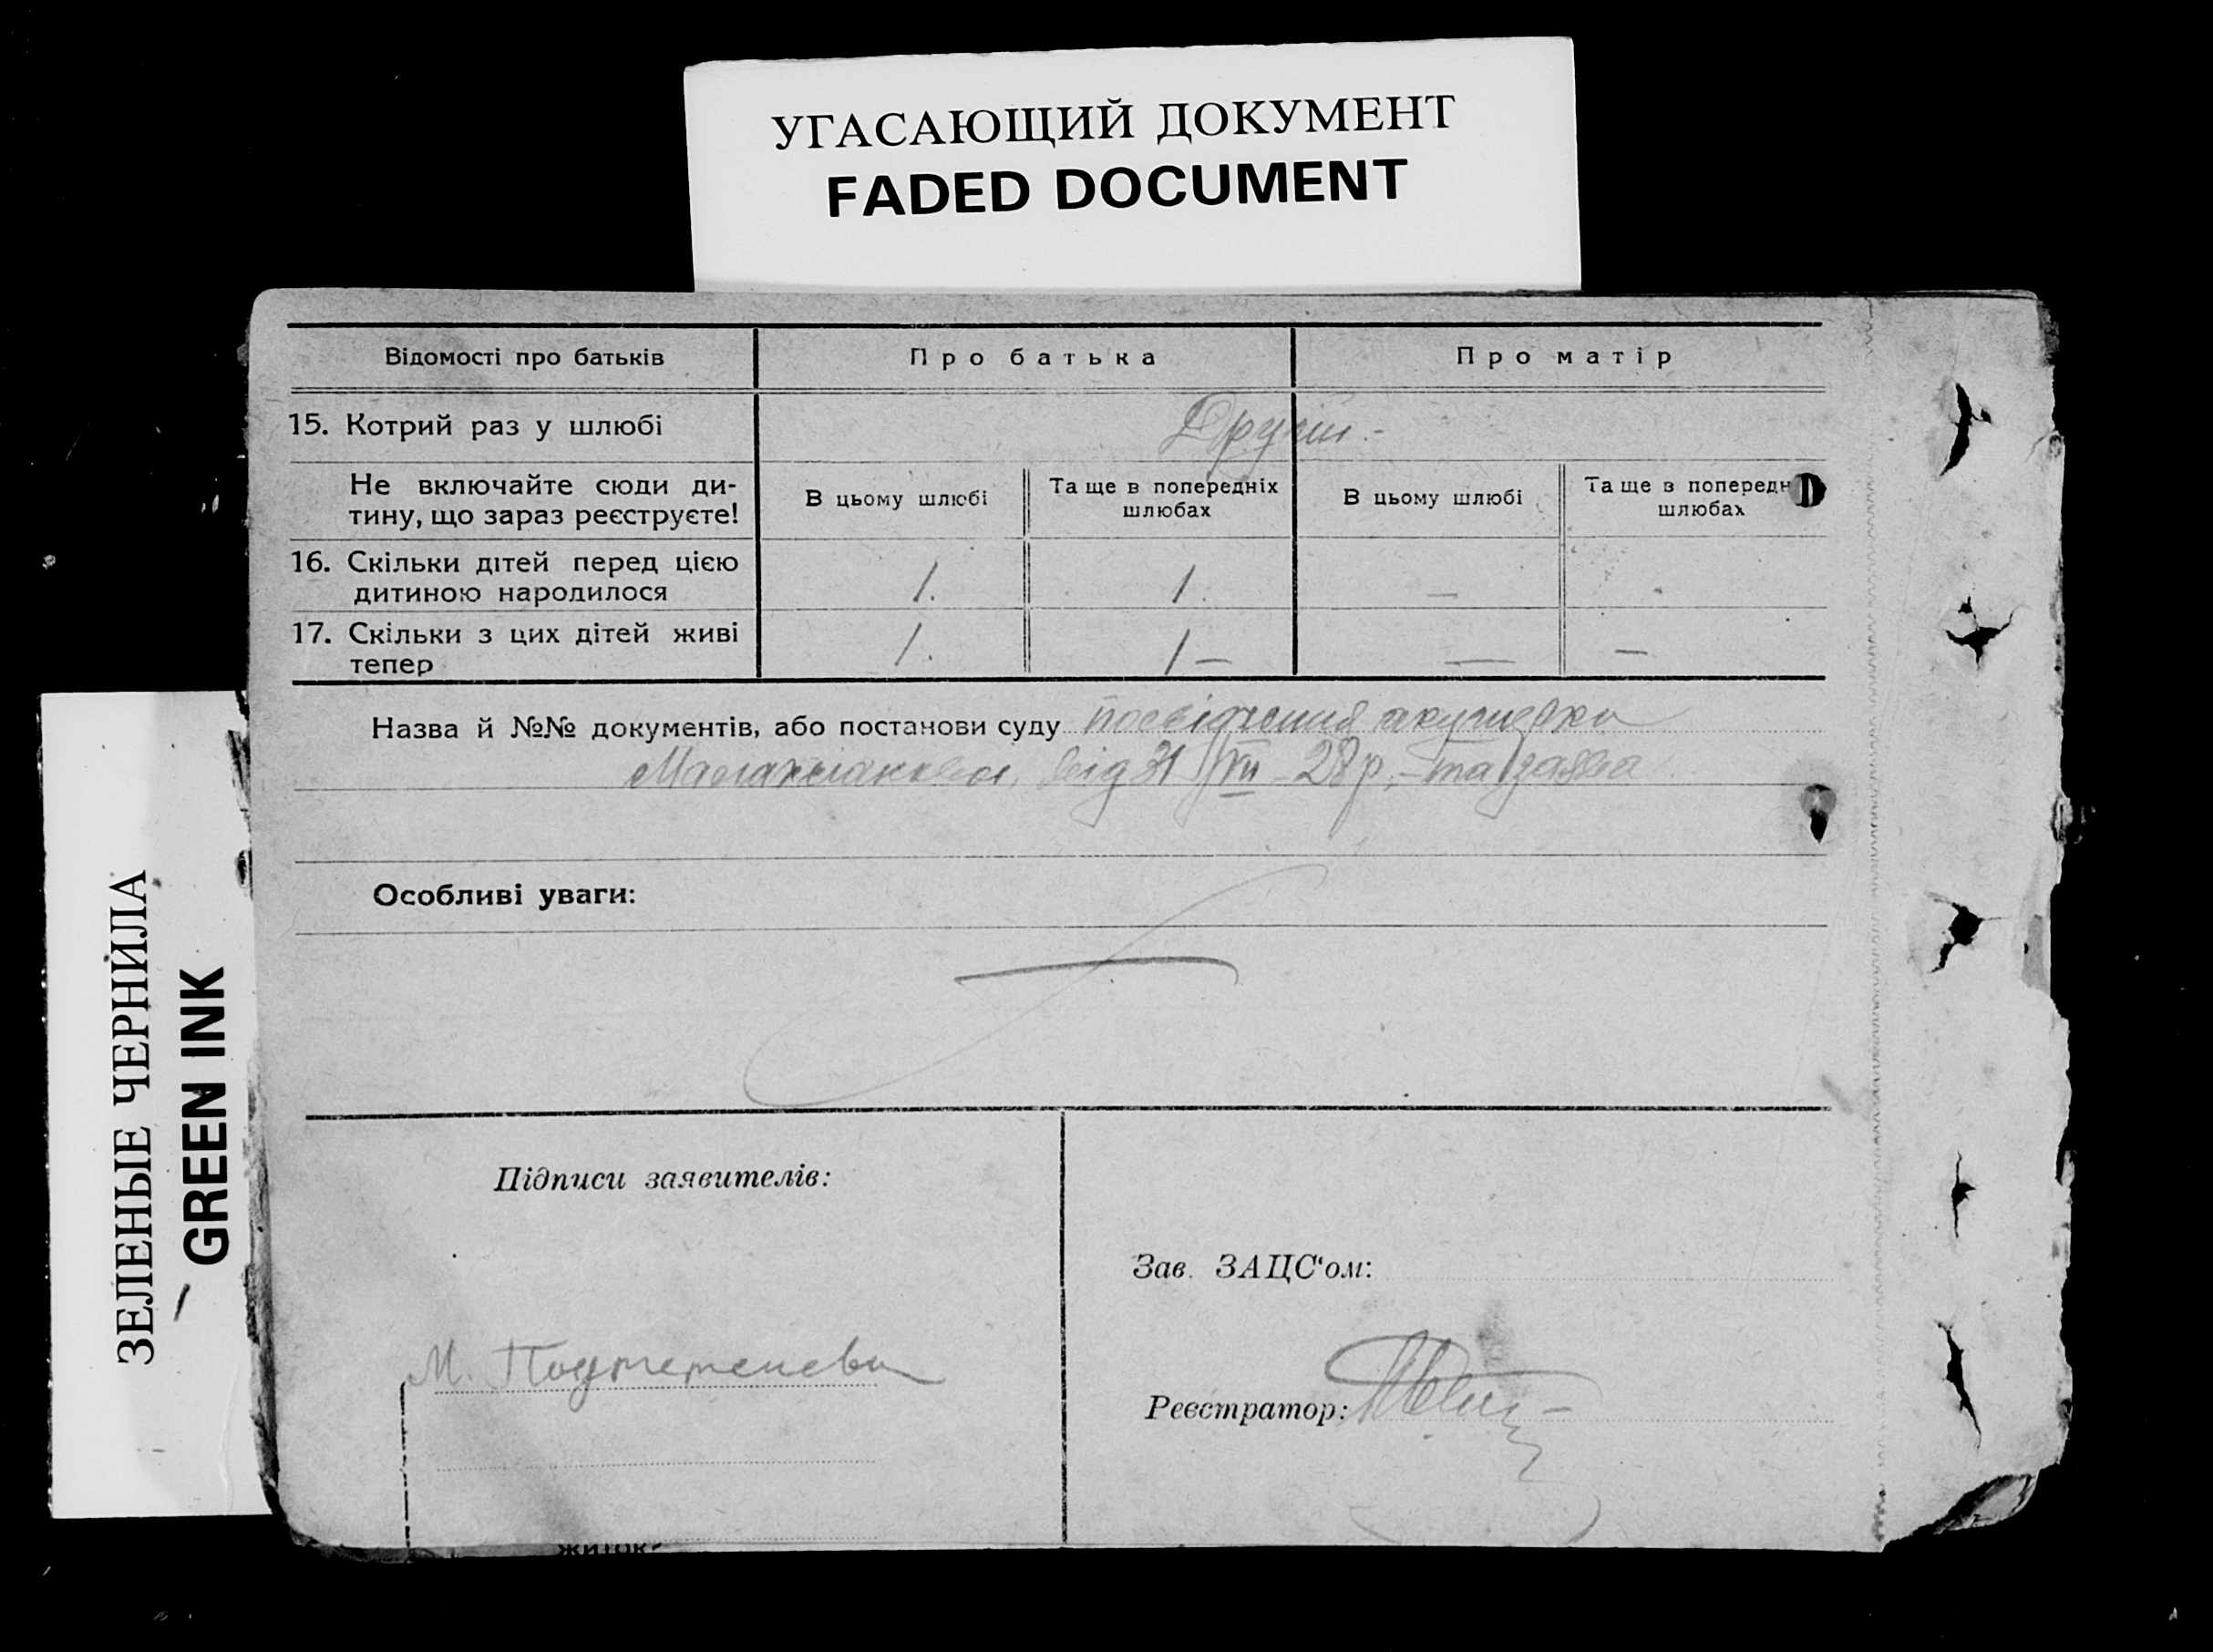 УГАСАЮЩИЙ ДОКУМЕНТ
FADED DOCUMENT
ЗЕЛЕНЫЕ ЧЕРНИЛА
GREEN INK
Відомості про батьків
Про батька
Про матір
15. Котрий раз у шлюбі
Другий.-
Не включайте сюди ди-
тину, що зараз реєструєте!
В цьому шлюбі
Та ще в попередніх
шлюбах
В цьому шлюбі
Та ще в попередн
шлюбах
16. Скільки дітей перед цією
дитиною народилося
1.
1.
—
17. Скільки з цих дітей живі
тепер
1.
1 —
—
—
Назва й №№ документів, або постанови суду посвідчення акушерки
від 31/VII 28 р, – та заява
Особливі уваги:
Підписи заявителів:
М.
Зав. ЗАЦС'ом:
Реєстратор:
житок-